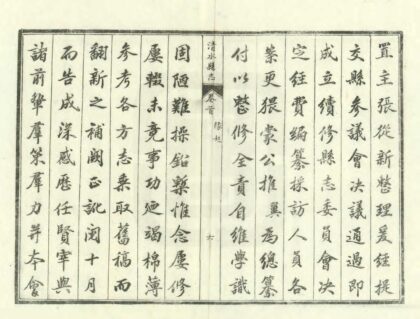 置主張從新整理爰經提
交縣參議會决議通過即
成立續修縣志委員會决
定經費編纂採訪人員各
案更猥蒙公推冀為總纂
付以整修全責自維學識
清水縣志 卷首 緣起 六
固陋難操鉛槧惟念屢修
屢輟未竟事功廼竭棉薄
參考各方志乘取舊稿而
翻新之補闕正訛閱十月
而告成深感歷任賢宰與
諸前輩羣策羣力并本會